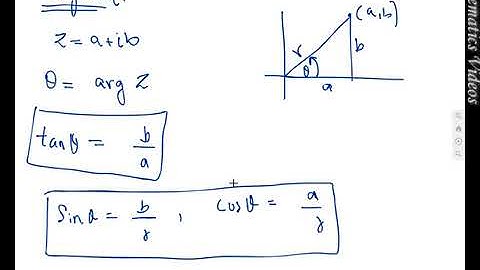 z = a+ib
θ = arg z
tanθ = b/a
sinθ = b/r , cosθ = a/r
(a,b)
r
b
θ
a
ematics Videos